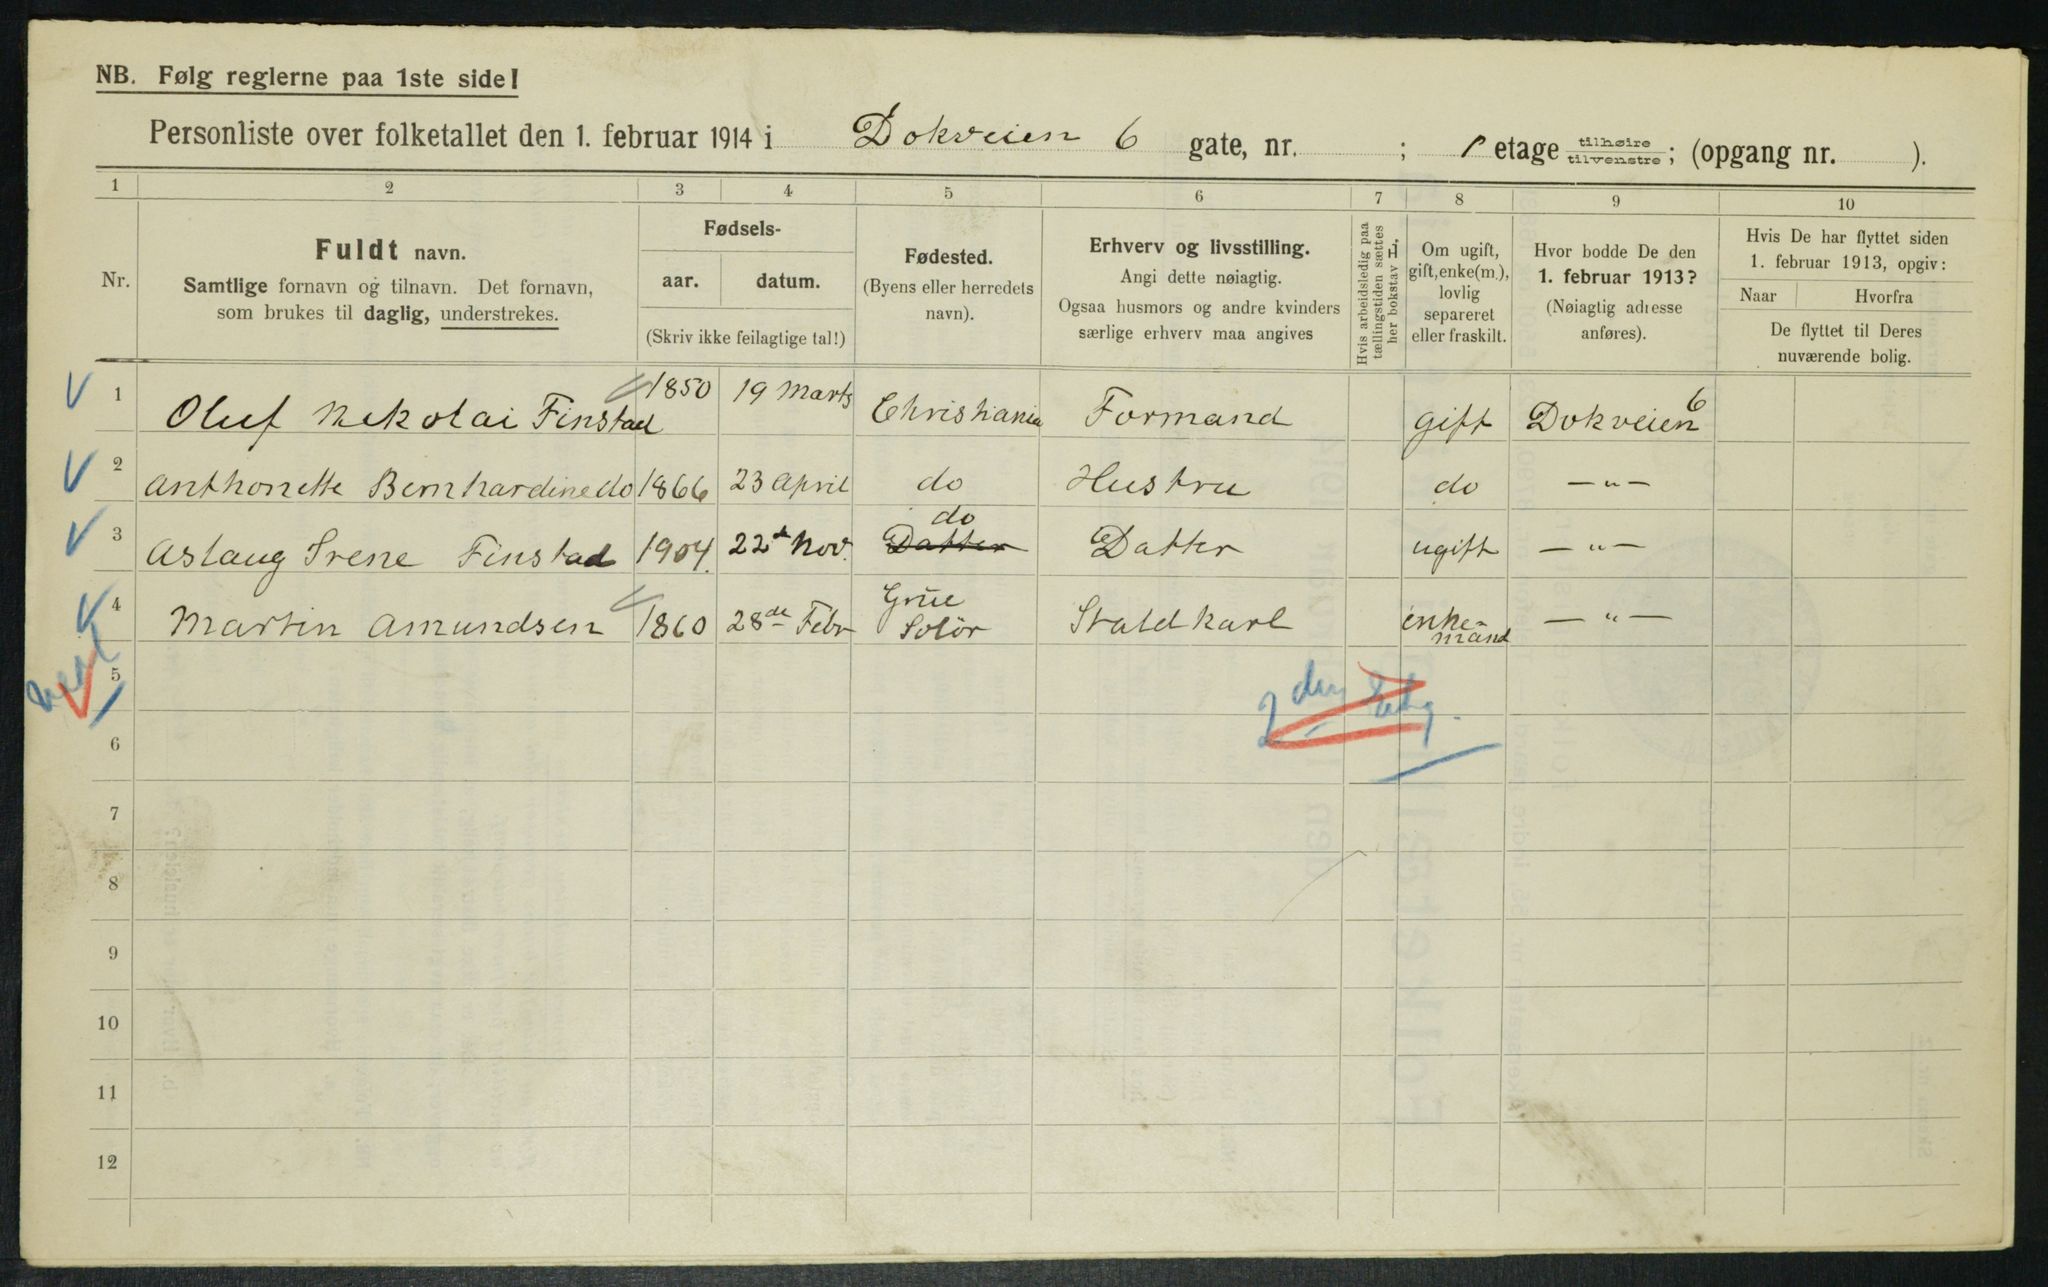 NB. Følg reglerne paa 1ste side!
Personliste over folketallet den 1. februar 1914 i Dokveien 6 gate, nr. ; 1 etage tilhøire tilvenstre; (opgang nr. ).
1 2 3 4 5 6 7 8 9 10
Nr.
Fuldt navn.
Samtlige fornavn og tilnavn. Det fornavn,
som brukes til daglig, understrekes.
Fødsels-
aar. datum.
(Skriv ikke feilagtige tal!)
Fødested.
(Byens eller herredets
navn).
Erhverv og livsstilling.
Angi dette nøiagtig.
Ogsaa husmors og andre kvinders
særlige erhverv maa angives
Hvis arbeidsledig paa
tællingstiden sættes
her bokstav L.
Om ugift,
gift, enke(m.),
lovlig
separeret
eller fraskilt.
Hvor bodde De den
1. februar 1913?
(Nøiagtig adresse
anføres).
Hvis De har flyttet siden
1. februar 1913, opgiv:
Naar Hvorfra
De flyttet til Deres
nuværende bolig.
1 Oluf Nikolai Finstad 1850 19 Marts Christiania Formand gift Dokveien 6
2 Anthonette Bernhardine do 1866 23 April do Hustru do — " —
3 Aslaug Irene Finstad 1904. 22d Nov. Datter do Datter ugift — " —
4 Martin Amundsen 1860 28de Febr Grue Solör Staldkarl enke-mand — " —
5
2
6
7
8
9
10
11
12